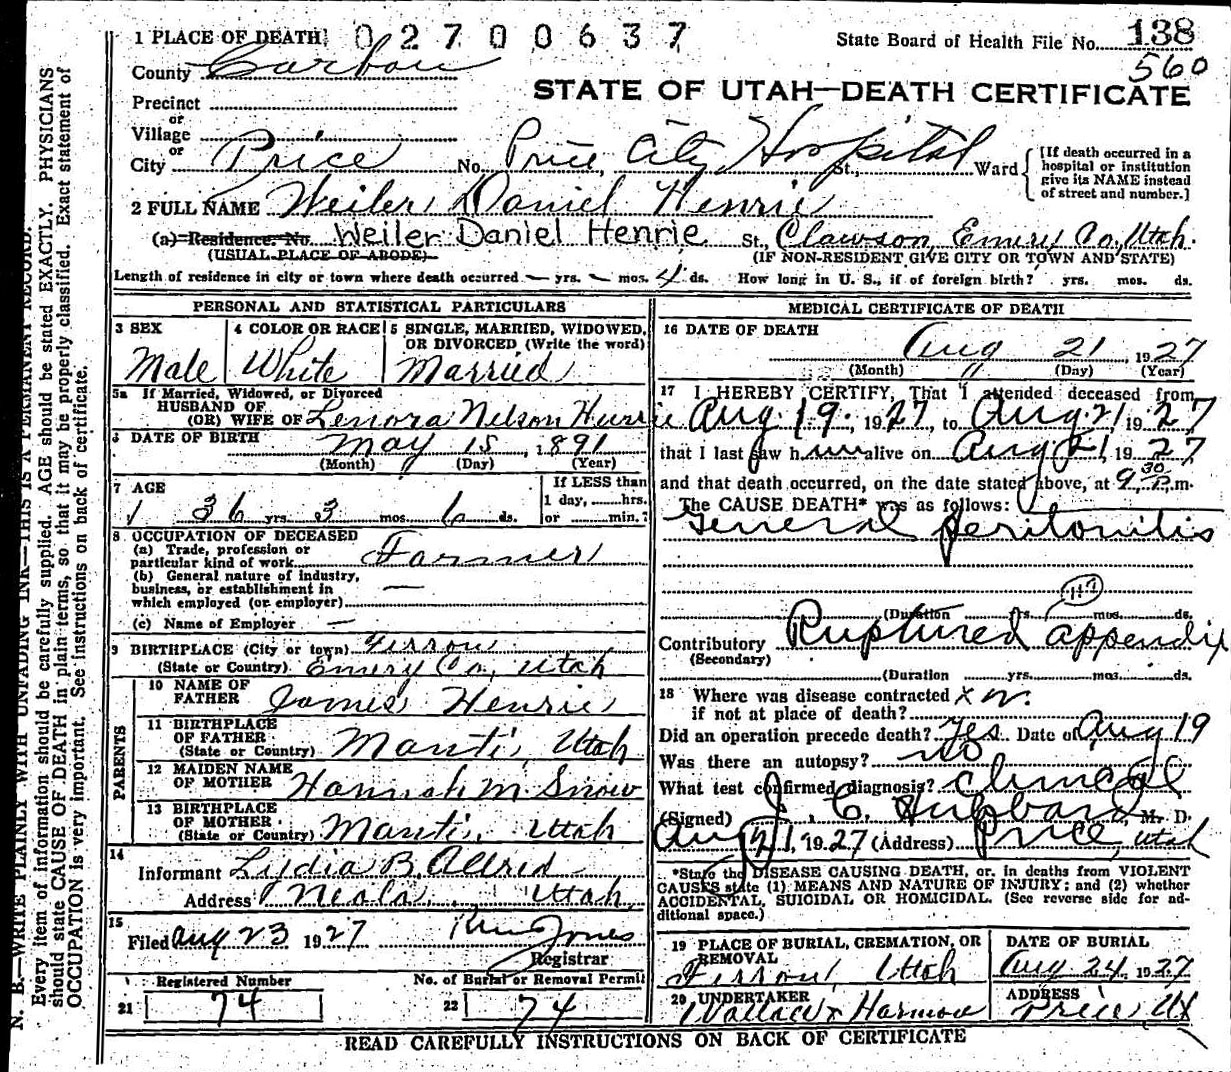 1 PLACE OF DEATH 02700637 State Board of Health File No. 138
County Carbon 560
STATE OF UTAH—DEATH CERTIFICATE
Precinct
or
Village
or
City Price No. Price City Hospital St., Ward
[If death occurred in a
hospital or institution
give its NAME instead
of street and number.]
2 FULL NAME Weiler Daniel Henrie
(a) Residence. No. Weiler Daniel Henrie St., Clawson, Emery Co. Utah.
(USUAL PLACE OF ABODE) (IF NON-RESIDENT GIVE CITY OR TOWN AND STATE)
Length of residence in city or town where death occurred — yrs. — mos. 4 ds. How long in U. S., if of foreign birth? yrs. mos. ds.
PERSONAL AND STATISTICAL PARTICULARS
3 SEX 4 COLOR OR RACE 5 SINGLE, MARRIED, WIDOWED,
OR DIVORCED (Write the word)
Male White Married
5a If Married, Widowed, or Divorced
HUSBAND OF
(OR) WIFE OF Lenora Nelson Henrie
6 DATE OF BIRTH May 15, 1891
(Month) (Day) (Year)
7 AGE If LESS than
1 day, hrs.
36 yrs. 3 mos. 6 ds. or min.?
8 OCCUPATION OF DECEASED
(a) Trade, profession or
particular kind of work Farmer
(b) General nature of industry,
business, or establishment in —
which employed (or employer)
(c) Name of Employer —
9 BIRTHPLACE (City or town) Ferron
(State or Country) Emery Co, Utah
PARENTS
10 NAME OF
FATHER James Henrie
11 BIRTHPLACE
OF FATHER
(State or Country) Manti, Utah
12 MAIDEN NAME
OF MOTHER Hannah M. Snow
13 BIRTHPLACE
OF MOTHER
(State or Country) Manti, Utah
14
Informant Lydia B. Allred
Address Neola, Utah,
15
Filed Aug 23 1927 Jones
Registrar
Registered Number No. of Burial or Removal Permit
21 74 22 74
MEDICAL CERTIFICATE OF DEATH
16 DATE OF DEATH
Aug 21, 1927
(Month) (Day) (Year)
17 I HEREBY CERTIFY, That I attended deceased from
Aug. 19, 1927, to Aug. 21 1927
that I last saw him alive on Aug 21, 1927
and that death occurred, on the date stated above, at 9 30 P.m.
The CAUSE DEATH* was as follows:
General peritonitis
117
(Duration yrs. mos. ds.
Contributory Ruptured appendix
(Secondary)
(Duration yrs. mos. ds.
18 Where was disease contracted
if not at place of death?
Did an operation precede death? Yes Date of Aug 19
Was there an autopsy? no
What test confirmed diagnosis? Clinical
(Signed) J. C. Hubbard, M. D.
Aug 21, 1927 (Address) Price, Utah
*State the DISEASE CAUSING DEATH, or, in deaths from VIOLENT
CAUSES state (1) MEANS AND NATURE OF INJURY; and (2) whether
ACCIDENTAL, SUICIDAL OR HOMICIDAL. (See reverse side for ad-
ditional space.)
19 PLACE OF BURIAL, CREMATION, OR
REMOVAL
Ferron, Utah
DATE OF BURIAL
Aug 24 1927
20 UNDERTAKER
Wallace & Harmon
ADDRESS
Price, Ut
READ CAREFULLY INSTRUCTIONS ON BACK OF CERTIFICATE
N. B.—WRITE PLAINLY WITH UNFADING INK—THIS IS A PERMANENT RECORD.
Every item of information should be carefully supplied. AGE should be stated EXACTLY. PHYSICIANS
should state CAUSE OF DEATH in plain terms, so that it may be properly classified. Exact statement of
OCCUPATION is very important. See instructions on back of certificate.